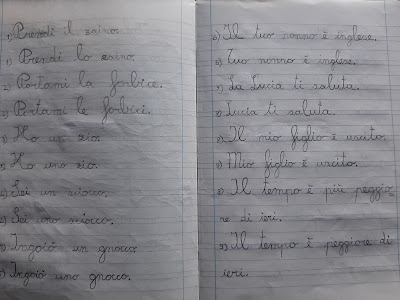 1) Prendi il zaino.
1) Prendi lo zaino.
2) Portami la forbice.
2) Portami le forbici.
3) Ho un zio.
3) Ho uno zio.
4) Sei un sciocco.
4) Sei uno sciocco.
5) Ingoiò un gnocco.
5) Ingoiò uno gnocco.
6) Il tuo nonno è inglese.
6) Tuo nonno è inglese.
7) La Lucia ti saluta.
7) Lucia ti saluta.
8) Il mio figlio è uscito.
8) Mio figlio è uscito.
9) Il tempo è più peggio
re di ieri.
9) Il tempo è peggiore di
ieri.